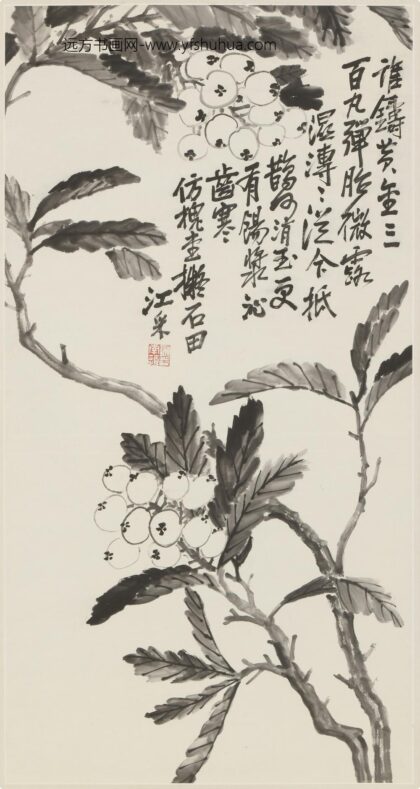 远方书画网-www.yishuhua.com
谁鑄黄金三
百丸彈胎微露
濕漙〻從今抵
鵲何消玉更
有餳漿沁
齒寒
仿拙老擬石田
江采